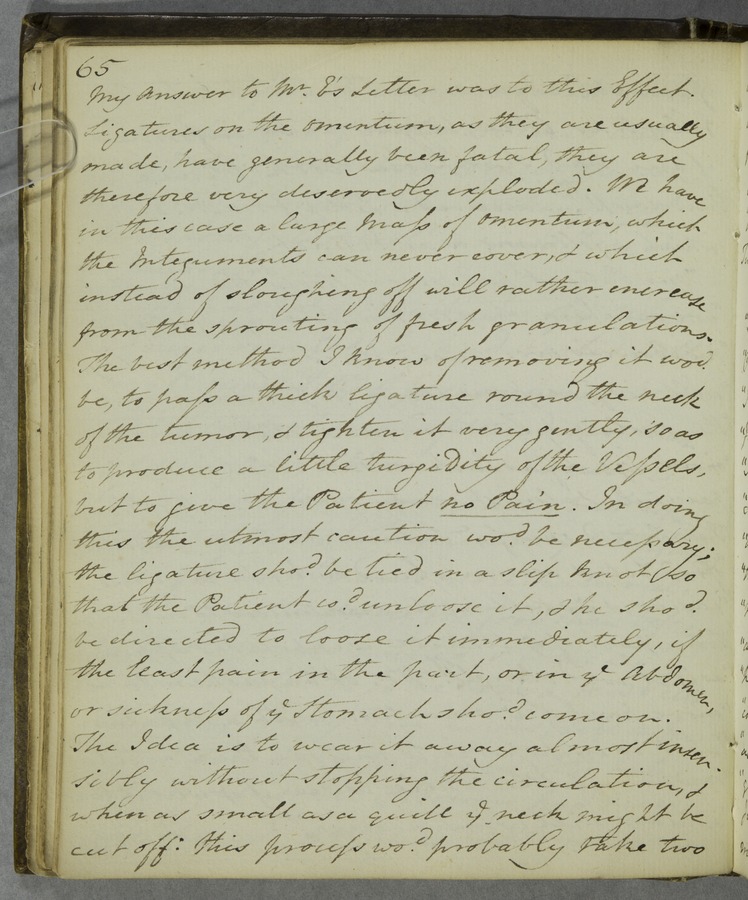 65
My Answer to Mr. E's Letter was to this Effect.
Ligatures on the Omentum, as they are usually
made, have generally been fatal, they are
therefore very deservedly exploded. We have
in this case a large Mass of Omentum, which
the Integuments can never cover, & which
instead of sloughing off will rather encrease
from the sprouting of fresh granulations.
The best method I know of removing it wod.
be, to pass a thick ligature round the neck
of the tumor, & tighten it very gently, so as
to produce a little turgidity of the Vessels,
but to give the Patient no Pain. In doing
this the utmost caution wod. be necessary;
the ligature shod. be tied in a slip knot (so
that the Patient cd. unloose it, & he shod.
be directed to loose it immediately, if
the least pain in the part, or in ye Abdomen,
or sickness of ye Stomach shod. come on.
The Idea is to wear it away almost insen-
sibly without stopping the circulation, &
when as small as a quill ye neck might be
cut off: this process wod. probably take two